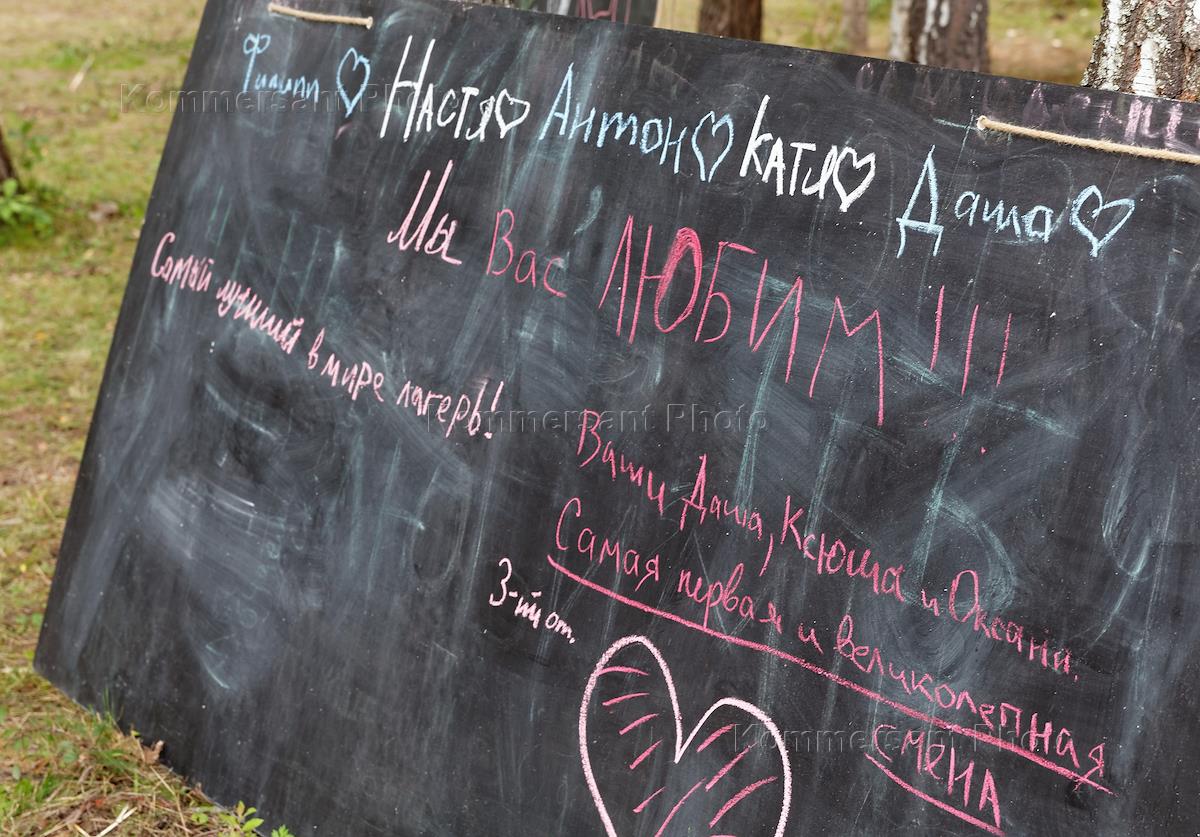 Филипп Настя Антон Катя Даша
Мы Вас ЛЮБИМ!!!
Самый лучший в мире лагерь!
Ваши Даша, Ксюша и Оксана.
Самая первая и великолепная
смена
3-ий от.
Kommersant Photo
Kommersant Photo
Kommersant Photo